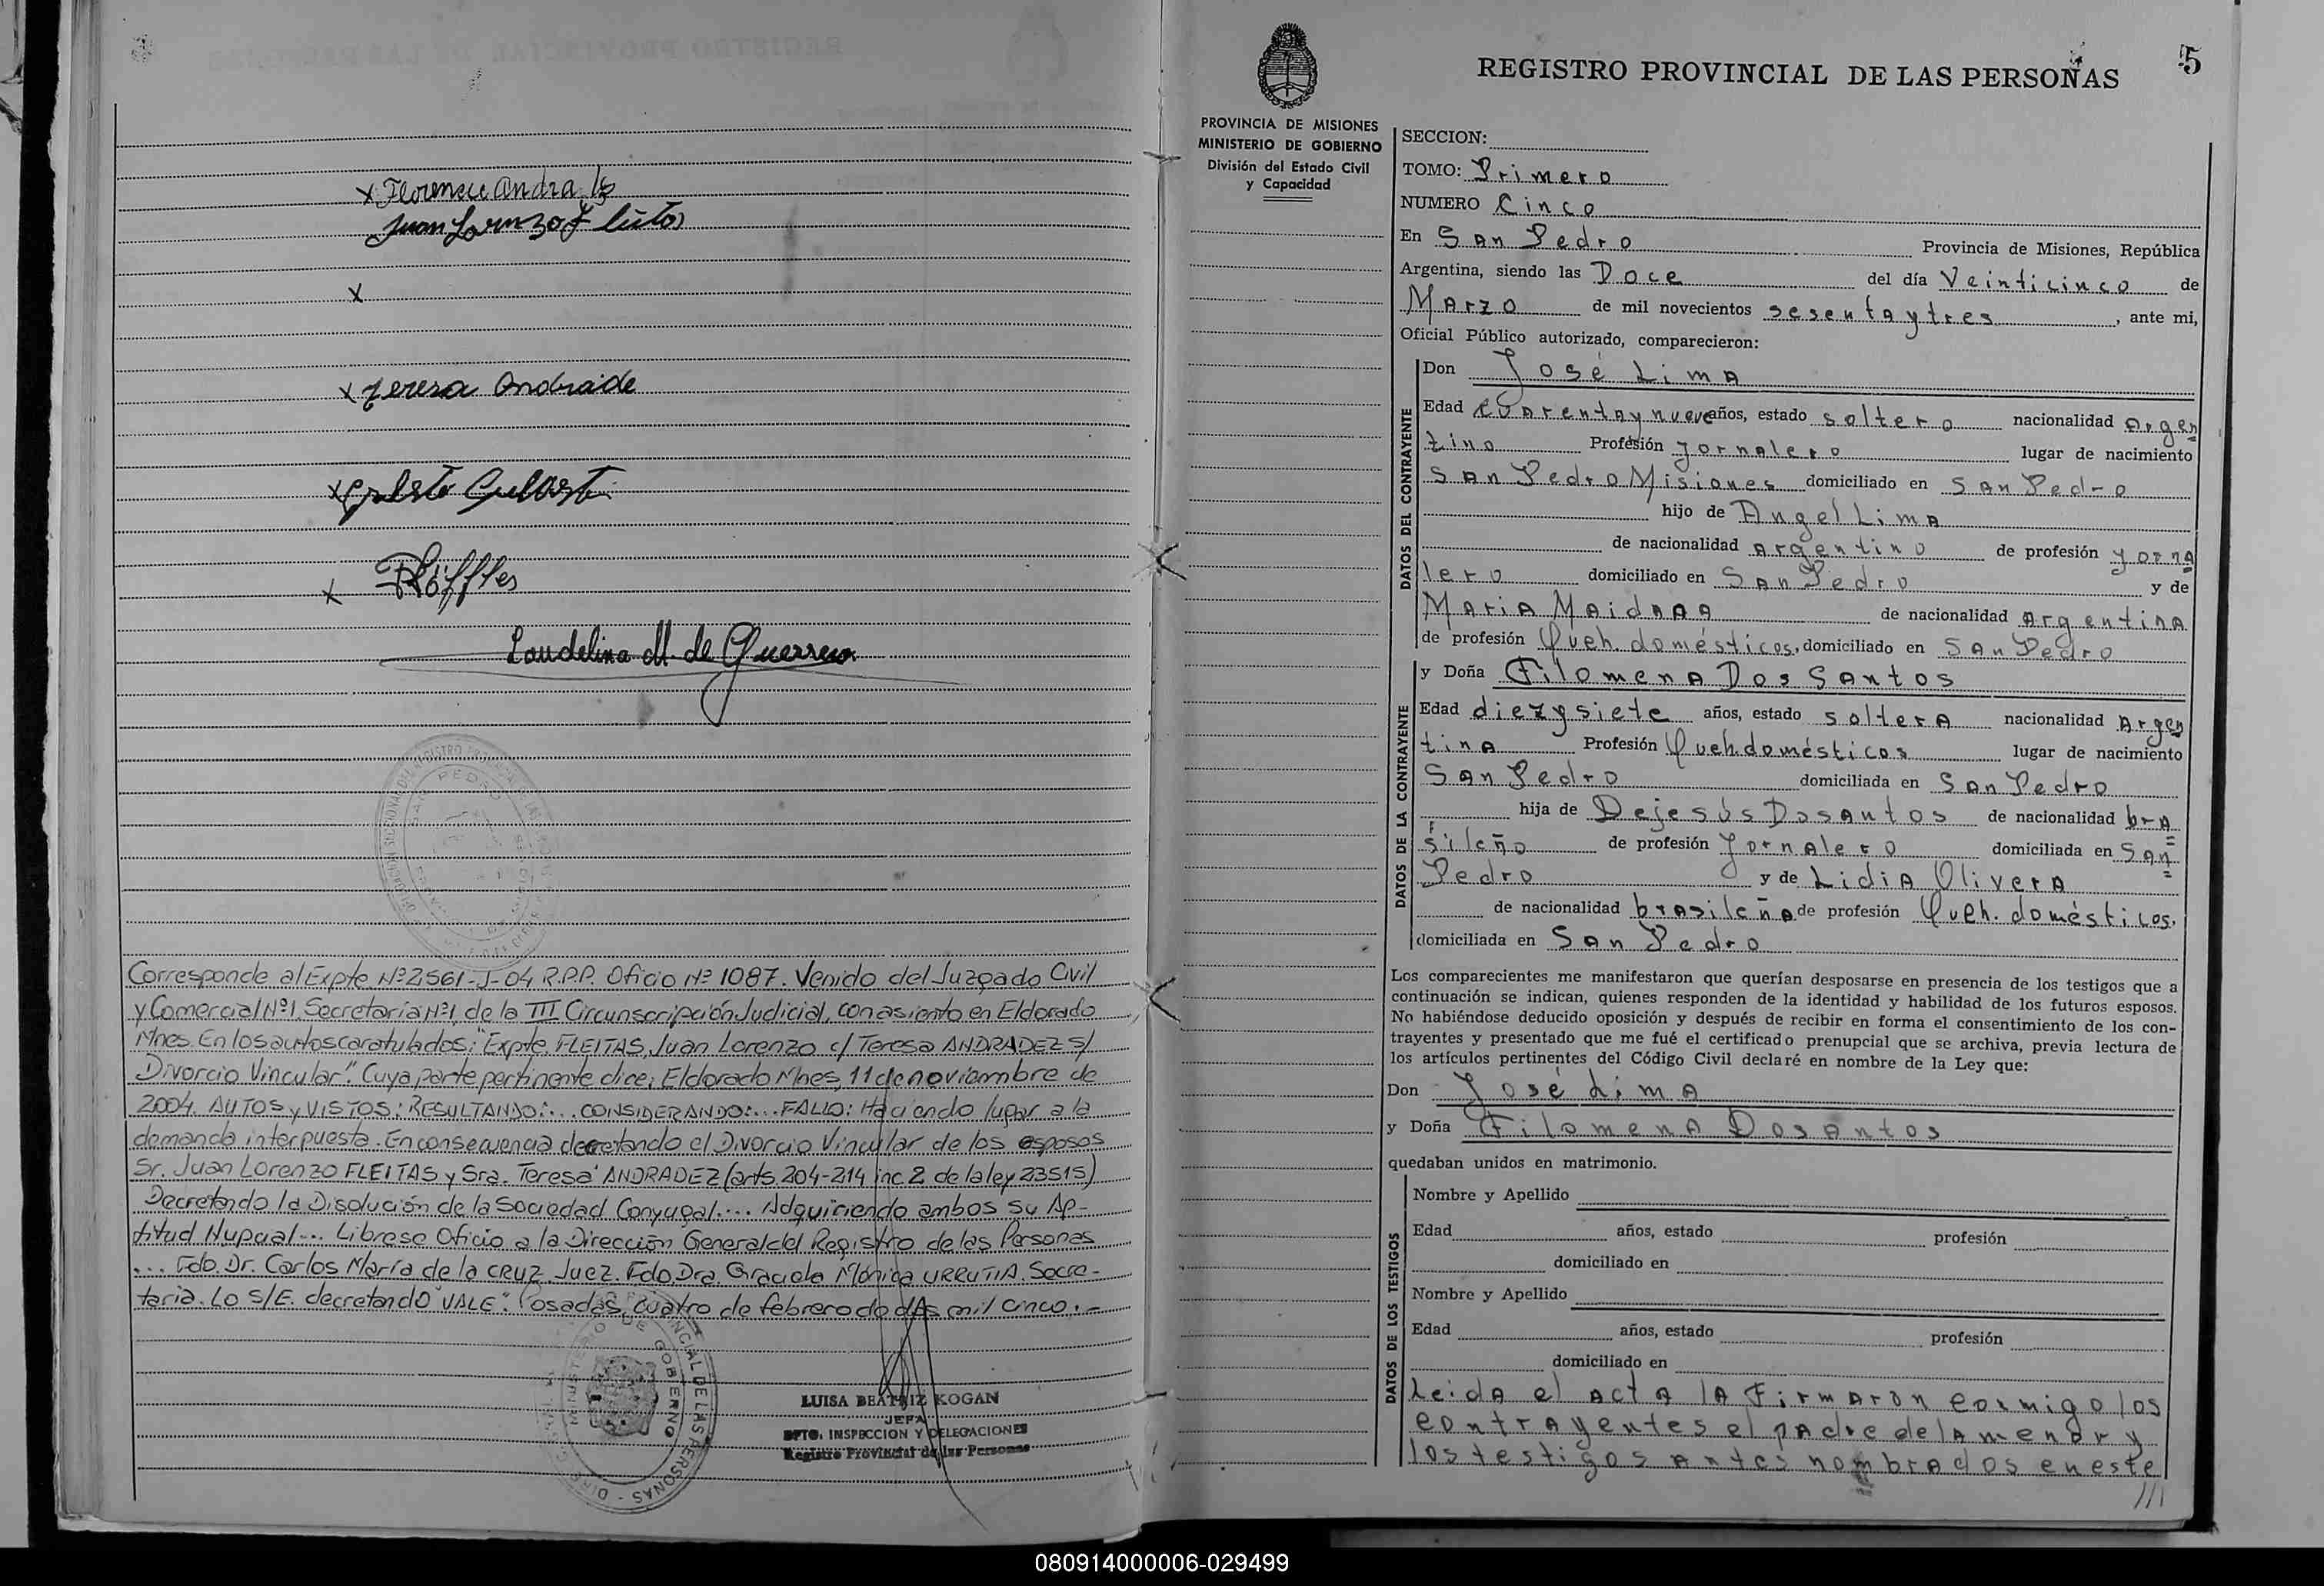 x Florencio Andra
Juan Lorenzo Fleitas
x
x Teresa Andrade
x
x
Laudelina M. de Guerrero
Corresponde al Expte Nº2561-J-04 R.P.P. Oficio Nº 1087. Venido del Juzgado Civil
y Comercial Nº1, Secretaría Nº1, de la III Circunscripción Judicial, con asiento en Eldorado
Mnes. En los autos caratulados; "Expte. FLEITAS, Juan Lorenzo c/ Teresa ANDRADEZ s/
Divorcio Vincular". Cuya parte pertinente dice; Eldorado Mnes, 11 de noviembre de
2004. AUTOS y VISTOS: RESULTANDO:... CONSIDERANDO:... FALLO: Haciendo lugar a la
demanda interpuesta. En consecuencia decretando el Divorcio Vincular de los esposos
Sr. Juan Lorenzo FLEITAS y Sra. Teresa ANDRADEZ (arts. 204-214 inc 2 de la ley 23515)
Decretando la Disolución de la Sociedad Conyugal.... Adquiriendo ambos su Ap-
titud Nupcial... Librese Oficio a la Dirección General del Registro de las Personas
... Fdo. Dr. Carlos María de la CRUZ Juez. Fdo. Dra. Graciela Mónica URRUTIA, Secre-
taria. Lo S/E. decretando "VALE". Posadas, cuatro de febrero de dos mil cinco.-
LUISA BEATRIZ KOGAN
JEFA
DPTO. INSPECCION Y DELEGACIONES
Registro Provincial de las Personas
REGISTRO PROVINCIAL DE LAS PERSONAS
5
PROVINCIA DE MISIONES
MINISTERIO DE GOBIERNO
División del Estado Civil
y Capacidad
SECCION:
TOMO: Primero
NUMERO Cinco
En San Pedro Provincia de Misiones, República
Argentina, siendo las Doce del día Veinticinco de
Marzo de mil novecientos sesenta y tres, ante mi,
Oficial Público autorizado, comparecieron:
DATOS DEL CONTRAYENTE
Don José Lima
Edad cuarenta y nueve años, estado soltero nacionalidad Argen
tino Profesión jornalero lugar de nacimiento
San Pedro Misiones domiciliado en San Pedro
hijo de Angel Lima
de nacionalidad argentino de profesión jorna
lero domiciliado en San Pedro y de
Maria Maidana de nacionalidad argentina
de profesión Queh. domésticos, domiciliado en San Pedro
DATOS DE LA CONTRAYENTE
y Doña Filomena Dos Santos
Edad diez y siete años, estado soltera nacionalidad Argen
tina Profesión Queh. domésticos lugar de nacimiento
San Pedro domiciliada en San Pedro
hija de Dejesús Dosantos de nacionalidad bra
sileño de profesión Jornalero domiciliada en San
Pedro y de Lidia Olivera
de nacionalidad brasileña de profesión Queh. domésticos,
domiciliada en San Pedro
Los comparecientes me manifestaron que querían desposarse en presencia de los testigos que a
continuación se indican, quienes responden de la identidad y habilidad de los futuros esposos.
No habiéndose deducido oposición y después de recibir en forma el consentimiento de los con-
trayentes y presentado que me fué el certificado prenupcial que se archiva, previa lectura de
los artículos pertinentes del Código Civil declaré en nombre de la Ley que:
Don José Lima
y Doña Filomena Dosantos
quedaban unidos en matrimonio.
DATOS DE LOS TESTIGOS
Nombre y Apellido
Edad años, estado profesión
domiciliado en
Nombre y Apellido
Edad años, estado profesión
domiciliado en
Leida el acta la firmaron conmigo los
contrayentes el padre de la menor y
los testigos antes nombrados en este
///
080914000006-029499